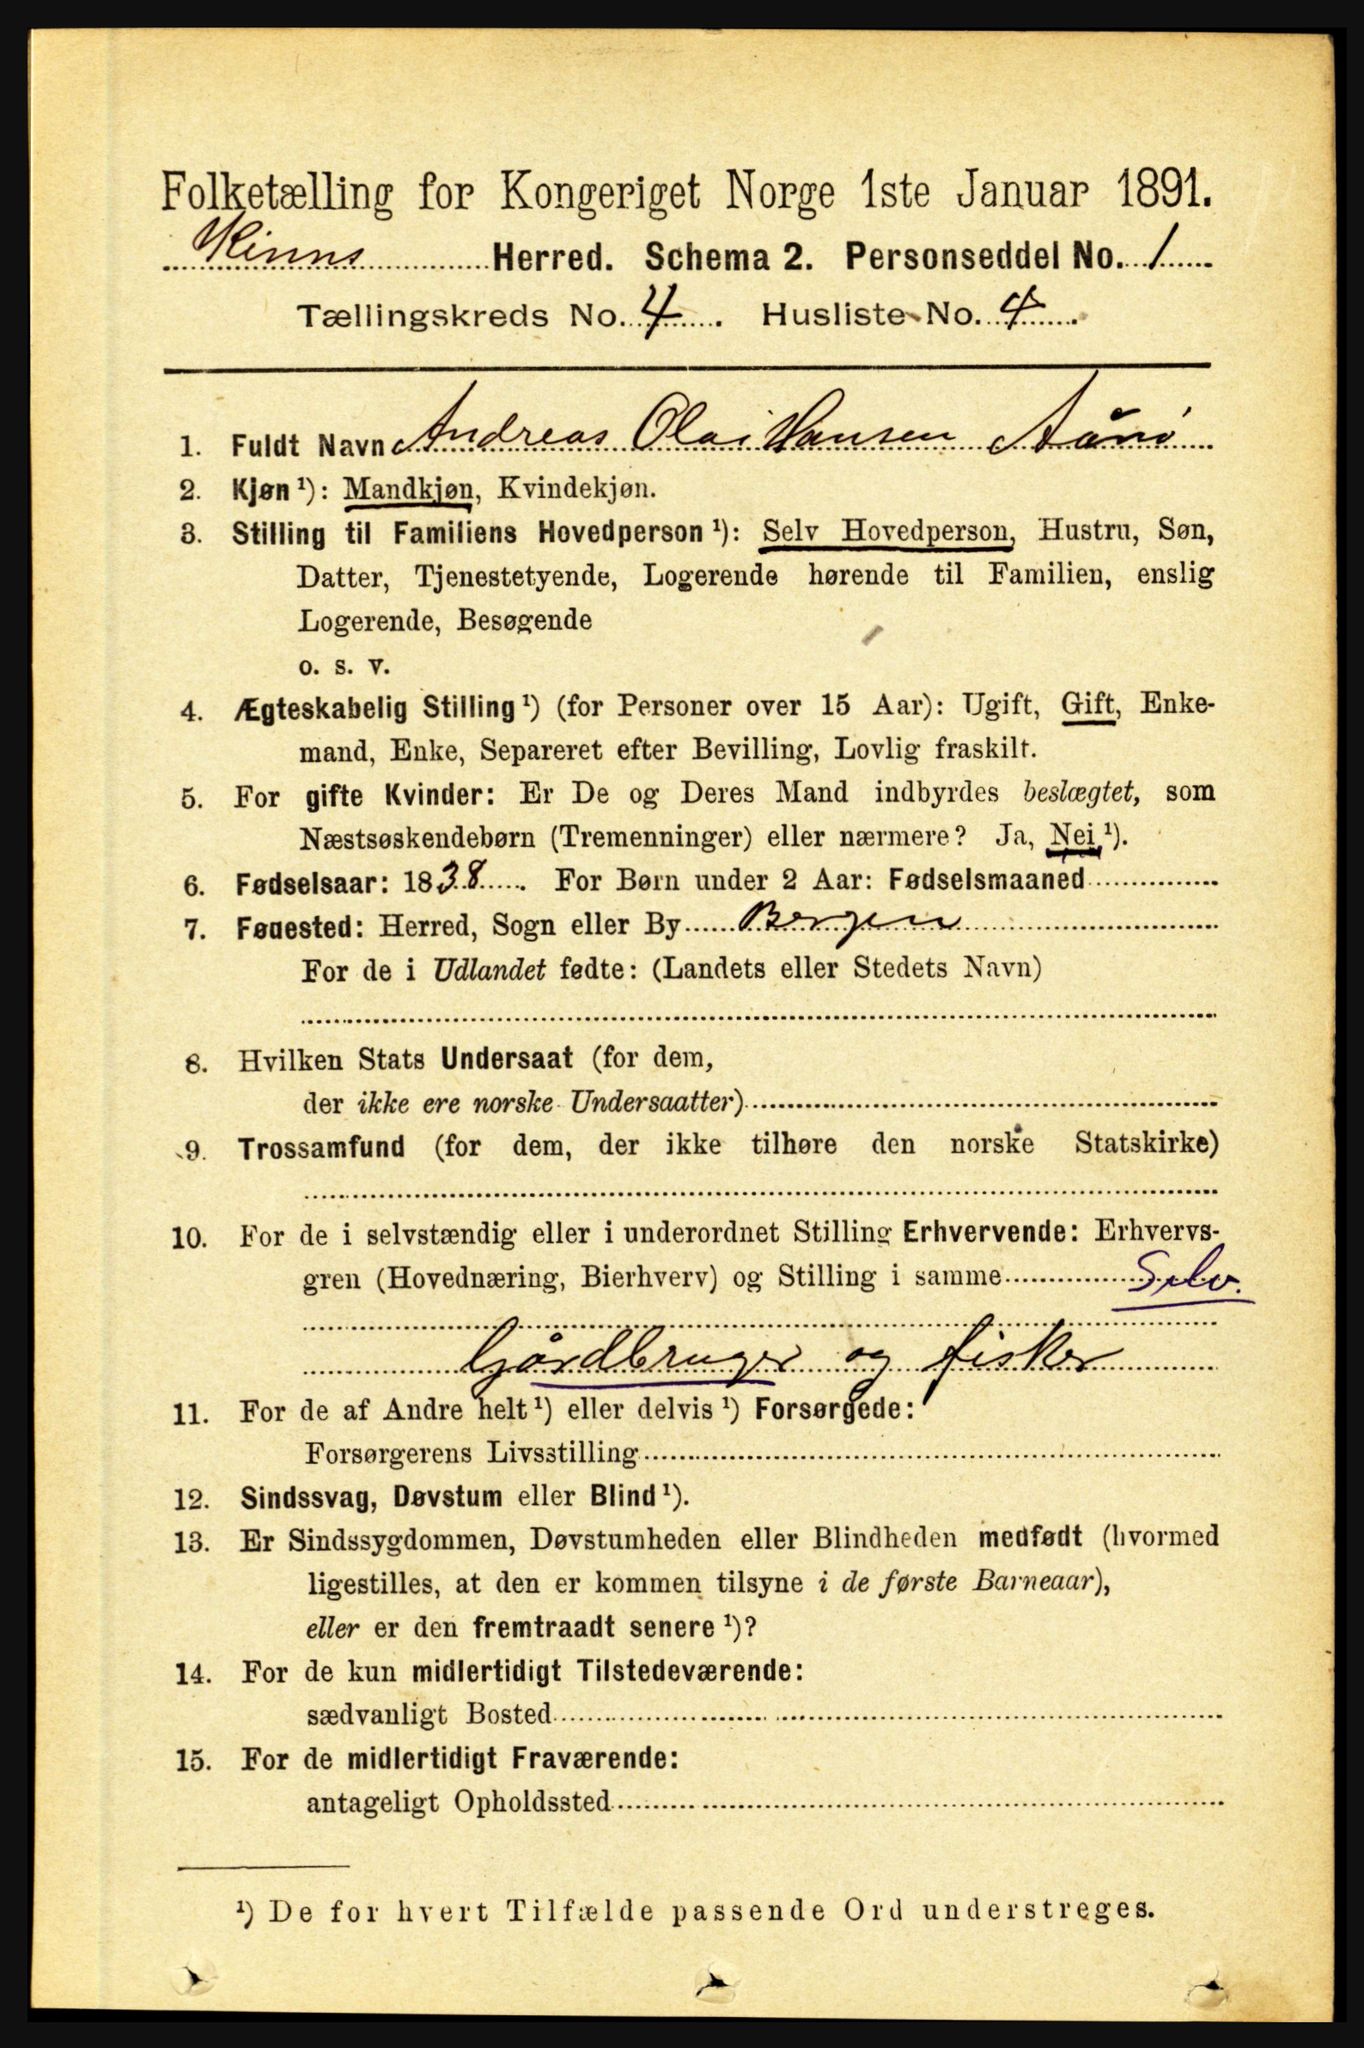 Folketælling for Kongeriget Norge 1ste Januar 1891.
Kinns Herred. Schema 2. Personseddel No. 1
Tællingskreds No. 4. Husliste No. 4.
1. Fuldt Navn Andreas Olai Hansen Aanø
2. Kjøn ¹): Mandkjøn, Kvindekjøn.
3. Stilling til Familiens Hovedperson ¹): Selv Hovedperson, Hustru, Søn,
Datter, Tjenestetyende, Logerende hørende til Familien, enslig
Logerende, Besøgende
o. s. v.
4. Ægteskabelig Stilling ¹) (for Personer over 15 Aar): Ugift, Gift, Enke-
mand, Enke, Separeret efter Bevilling, Lovlig fraskilt.
5. For gifte Kvinder: Er De og Deres Mand indbyrdes beslægtet, som
Næstsøskendebørn (Tremenninger) eller nærmere? Ja, Nei ¹).
6. Fødselsaar: 1838. For Børn under 2 Aar: Fødselsmaaned
7. Føuested: Herred, Sogn eller By Bergen
For de i Udlandet fødte: (Landets eller Stedets Navn)
8. Hvilken Stats Undersaat (for dem,
der ikke ere norske Undersaatter)
9. Trossamfund (for dem, der ikke tilhøre den norske Statskirke)
10. For de i selvstændig eller i underordnet Stilling Erhvervende: Erhvervs-
gren (Hovednæring, Bierhverv) og Stilling i samme Selv.
Gårdbruger og fisker
11. For de af Andre helt ¹) eller delvis ¹) Forsørgede:
Forsørgerens Livsstilling
12. Sindssvag, Døvstum eller Blind ¹).
13. Er Sindssygdommen, Døvstumheden eller Blindheden medfødt (hvormed
ligestilles, at den er kommen tilsyne i de første Barneaar),
eller er den fremtraadt senere ¹)?
14. For de kun midlertidigt Tilstedeværende:
sædvanligt Bosted
15. For de midlertidigt Fraværende:
antageligt Opholdssted
¹) De for hvert Tilfælde passende Ord understreges.